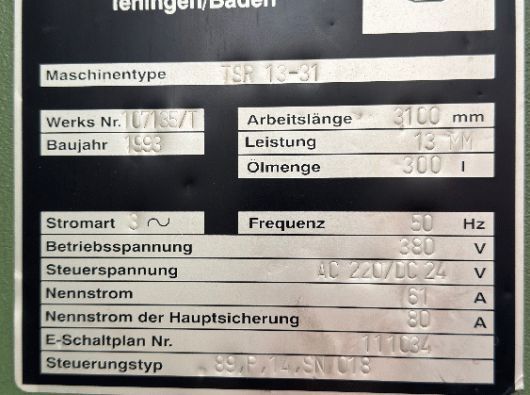 Teningen/Baden
Maschinentype TSR 13-31
Werks Nr. 107135/T
Baujahr 1993
Arbeitslänge 3100 mm
Leistung 13 MM
Ölmenge 300 l
Stromart 3 ~
Frequenz 50 Hz
Betriebsspannung 380 V
Steuerspannung AC 220/DC 24 V
Nennstrom 61 A
Nennstrom der Hauptsicherung 80 A
E-Schaltplan Nr. 111034
Steuerungstyp 89,P,14,SN,018